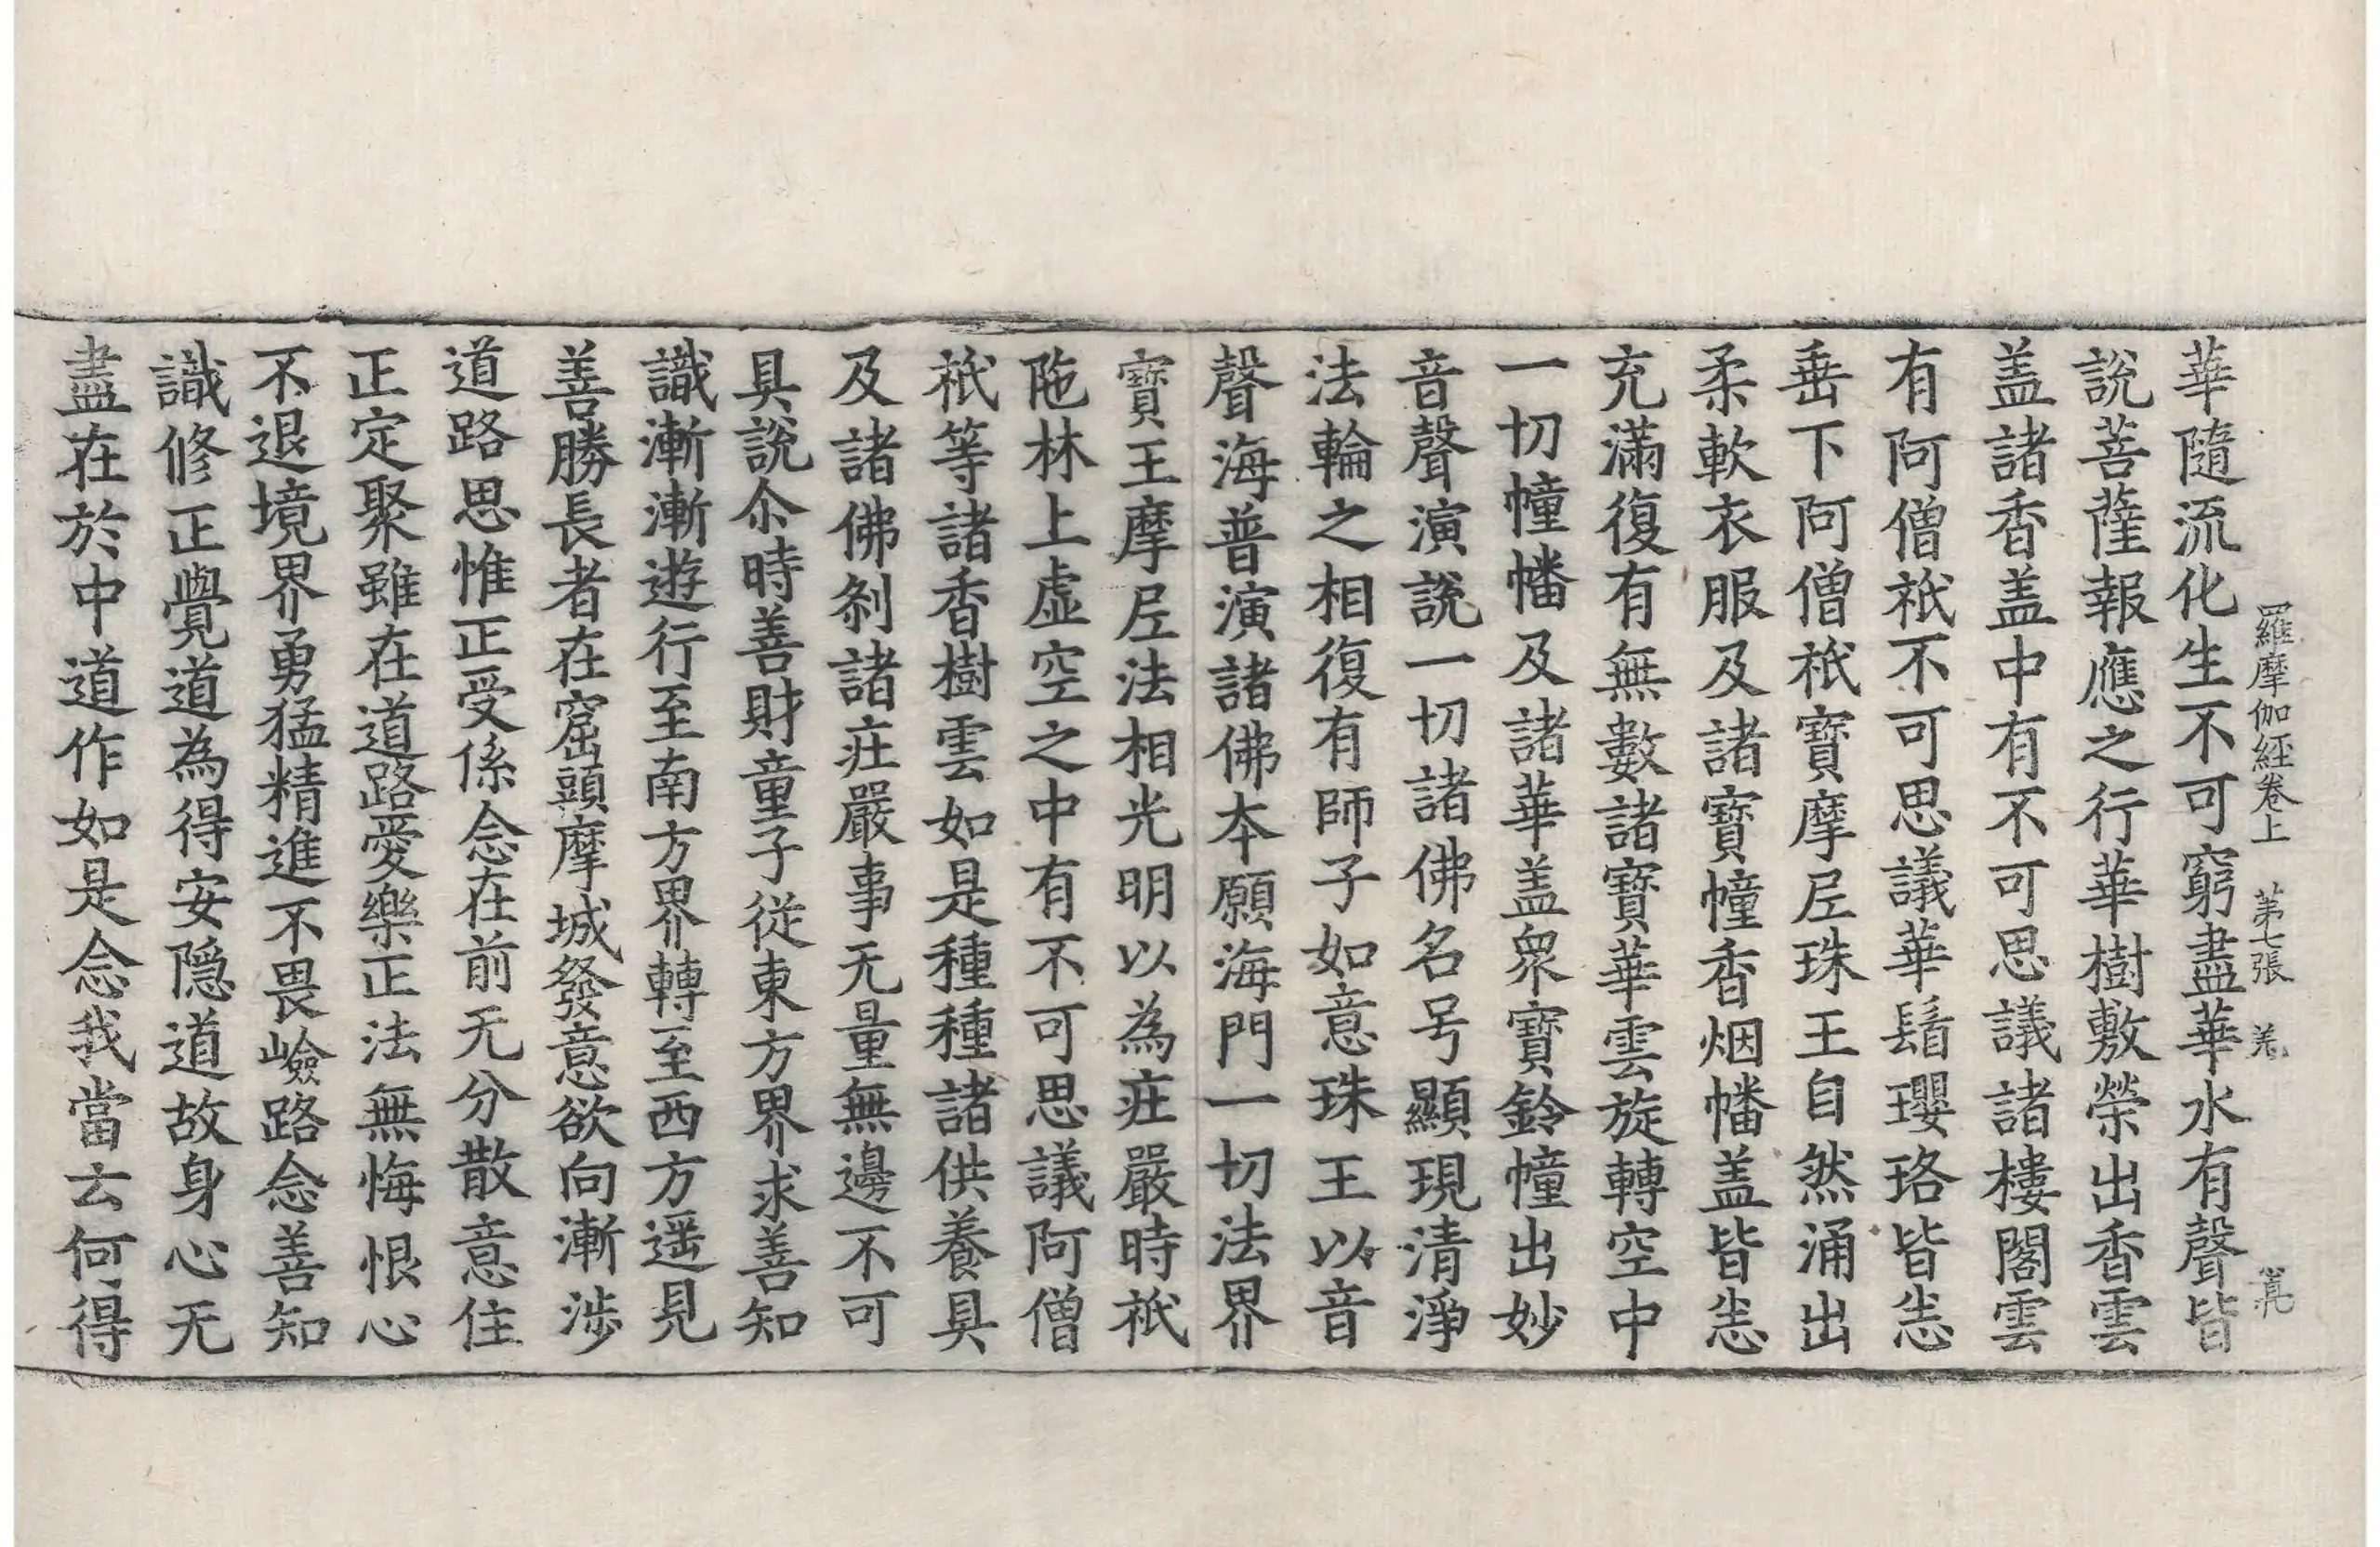 羅摩伽経卷上 第七張 羗
華隨流化生不可窮盡華水有聲皆
說菩薩報應之行華樹敷榮出香雲
盖諸香盖中有不可思議諸樓閣雲
有阿僧祇不可思議華鬘瓔珞皆悉
垂下阿僧祇寶摩尼珠王自然涌出
柔軟衣服及諸寶幢香烟幡盖皆悉
充滿復有無數諸寶華雲旋轉空中
一切幢幡及諸華盖衆寶鈴幢出妙
音聲演說一切諸佛名号顯現清淨
法輪之相復有師子如意珠王以音
聲海普演諸佛本願海門一切法界
寶王摩尼法相光明以為莊嚴時祇
陁林上虛空之中有不可思議阿僧
祇等諸香樹雲如是種種諸供養具
及諸佛刹諸莊嚴事无量無邊不可
具說尒時善財童子從東方界求善知
識漸漸遊行至南方界轉至西方遥見
善勝長者在窟頭摩城發意欲向漸涉
道路思惟正受係念在前无分散意住
正定聚雖在道路愛樂正法無悔恨心
不退境界勇猛精進不畏嶮路念善知
識修正覺道為得安隱道故身心无
盡在於中道作如是念我當云何得